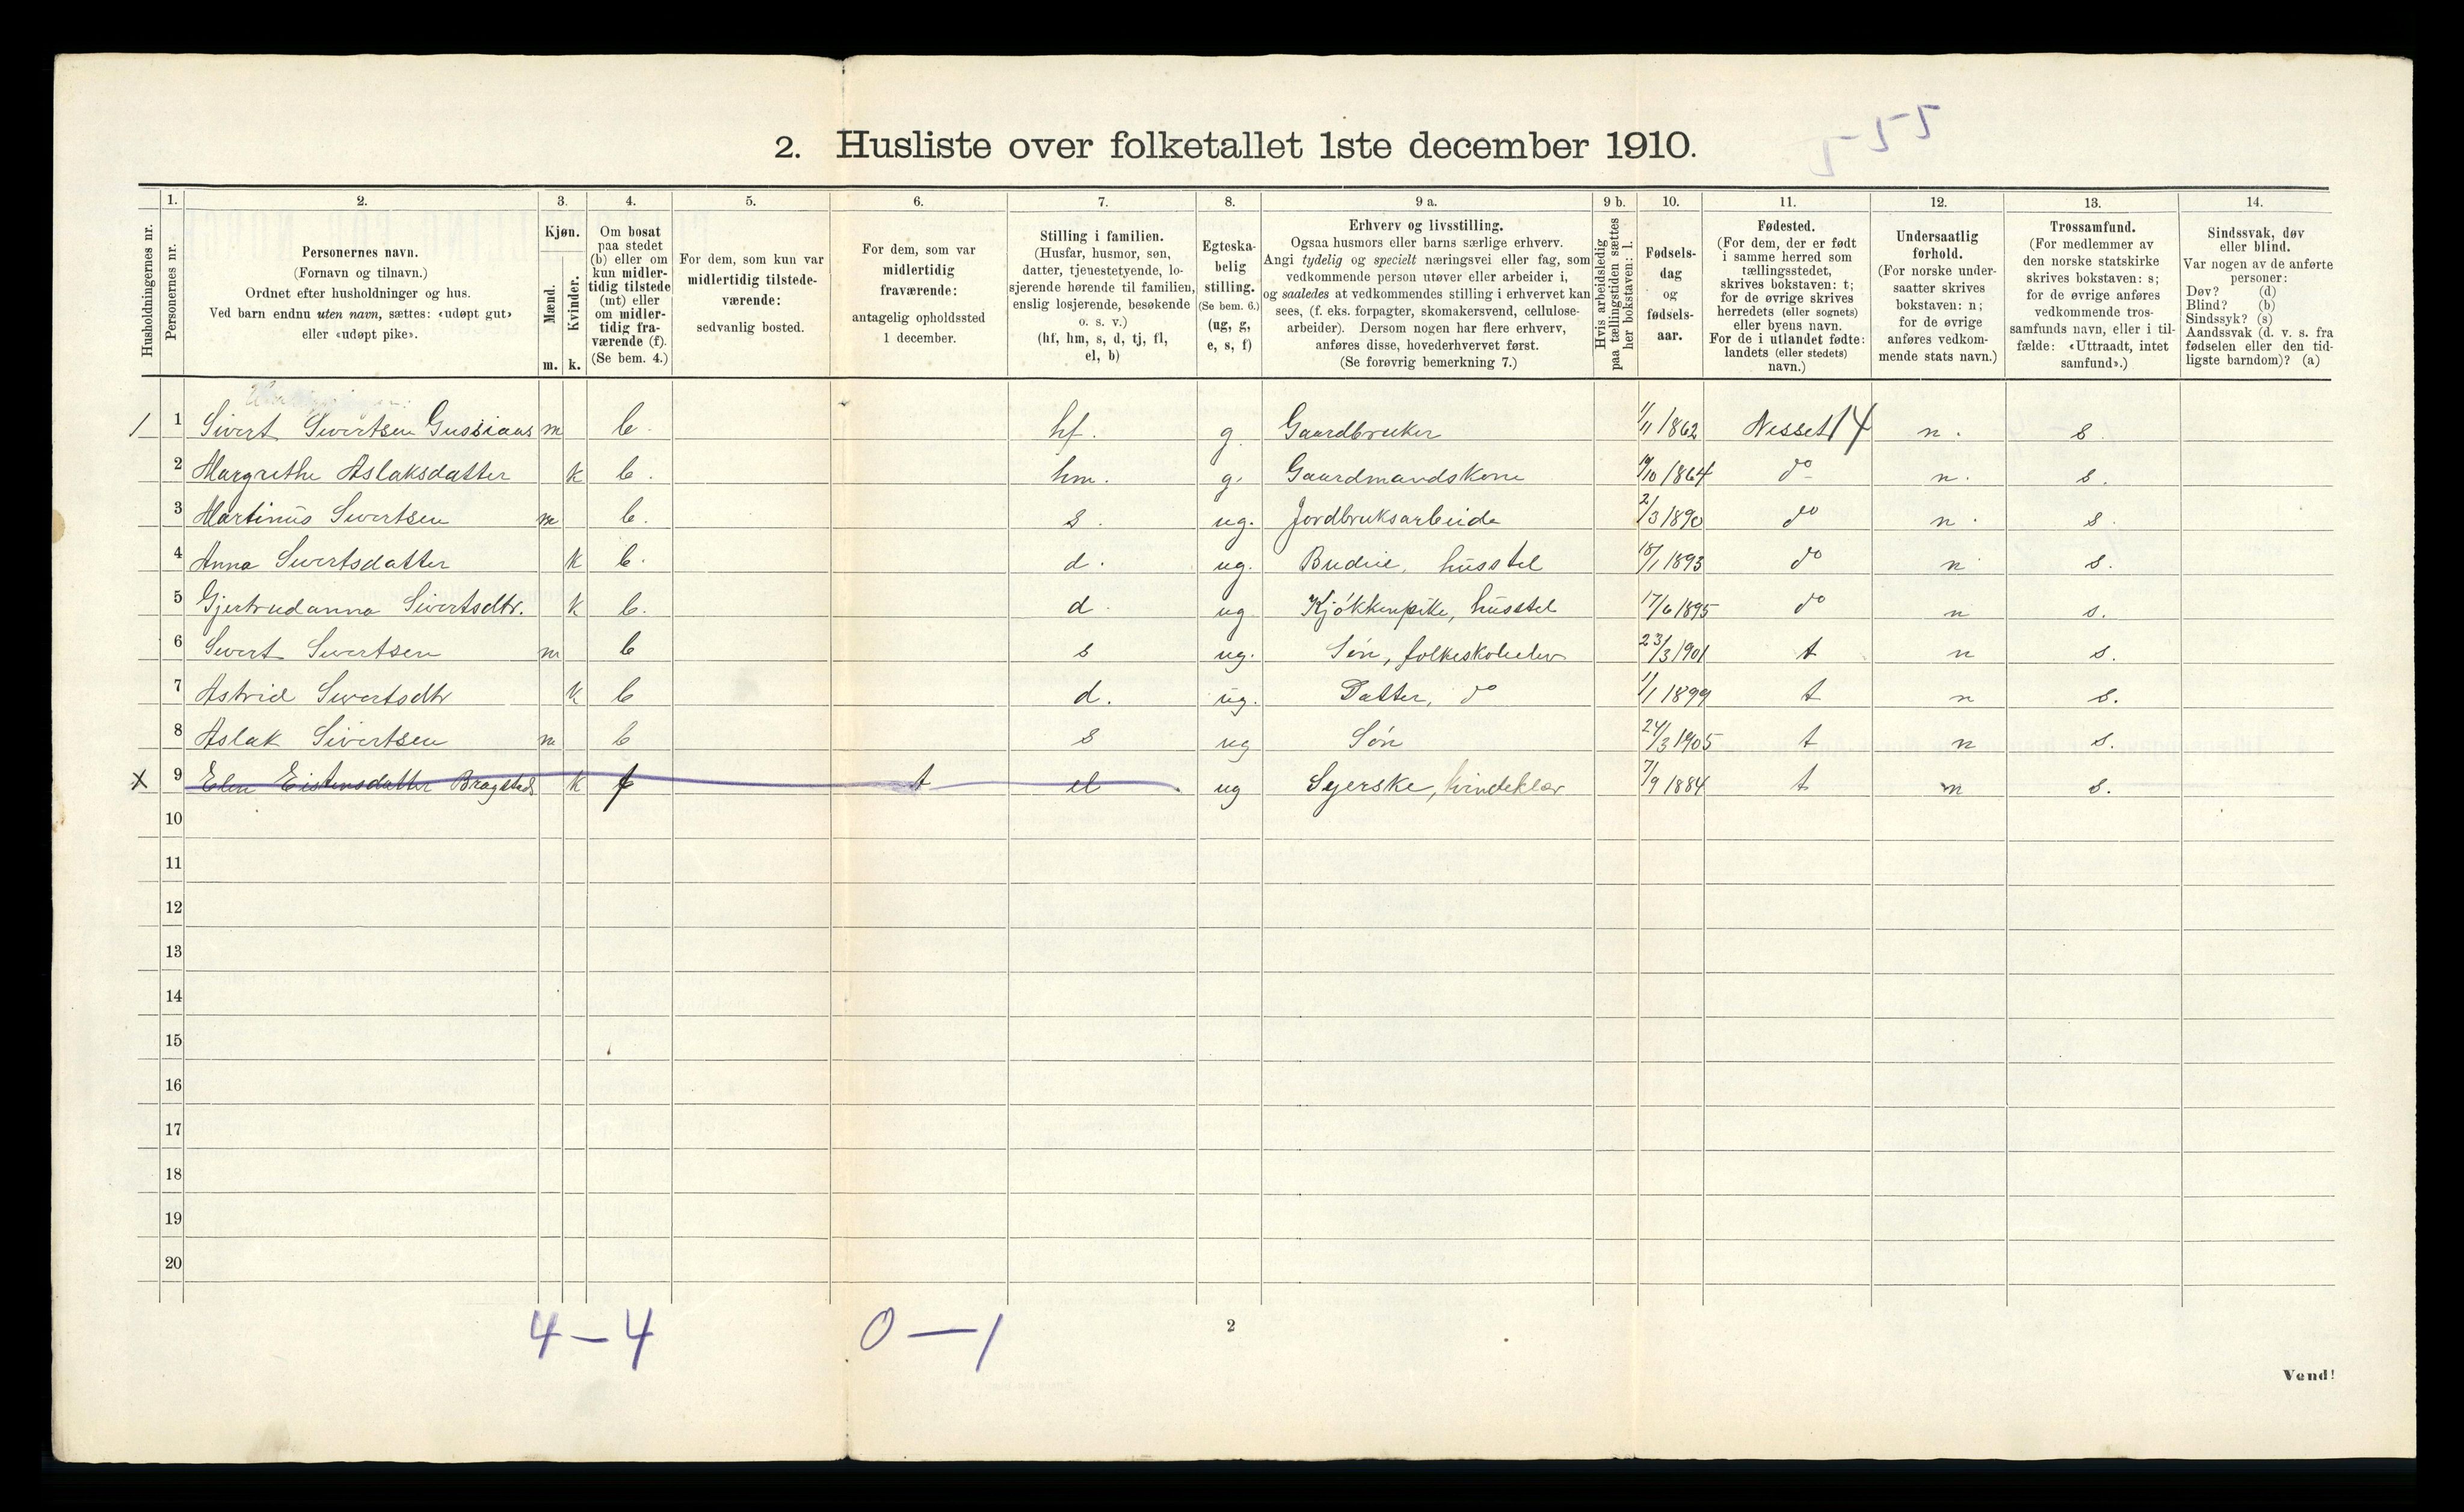 2. Husliste over folketallet 1ste december 1910.
5-55
Husholdningernes nr.
1. Personernes nr.
2. Personernes navn. (Fornavn og tilnavn.) Ordnet efter husholdninger og hus. Ved barn endnu uten navn, sættes: «udøpt gut» eller «udøpt pike».
3. Kjøn. Mænd. m. Kvinder. k.
4. Om bosat paa stedet (b) eller om kun midlertidig tilstede (mt) eller om midlertidig fraværende (f). (Se bem. 4.)
5. For dem, som kun var midlertidig tilstedeværende: sedvanlig bosted.
6. For dem, som var midlertidig fraværende: antagelig opholdssted 1 december.
7. Stilling i familien. (Husfar, husmor, søn, datter, tjenestetyende, losjerende hørende til familien, enslig losjerende, besøkende o. s. v.) (hf, hm, s, d, tj, fl, el, b)
8. Egteskabelig stilling. (Se bem. 6.) (ug, g, e, s, f)
9 a. Erhverv og livsstilling. Ogsaa husmors eller barns særlige erhverv. Angi tydelig og specielt næringsvei eller fag, som vedkommende person utøver eller arbeider i, og saaledes at vedkommendes stilling i erhvervet kan sees, (f. eks. forpagter, skomakersvend, cellulosearbeider). Dersom nogen har flere erhverv, anføres disse, hovederhvervet først. (Se forøvrig bemerkning 7.)
9 b. Hvis arbeidsledig paa tællingstiden sættes her bokstaven: l.
10. Fødselsdag og fødselsaar.
11. Fødested. (For dem, der er født i samme herred som tællingsstedet, skrives bokstaven: t; for de øvrige skrives herredets (eller sognets) eller byens navn. For de i utlandet fødte: landets (eller stedets) navn.)
12. Undersaatlig forhold. (For norske undersaatter skrives bokstaven: n; for de øvrige anføres vedkommende stats navn.)
13. Trossamfund. (For medlemmer av den norske statskirke skrives bokstaven: s; for de øvrige anføres vedkommende trossamfunds navn, eller i tilfælde: «Uttraadt, intet samfund».)
14. Sindssvak, døv eller blind. Var nogen av de anførte personer: Døv? (d) Blind? (b) Sindssyk? (s) Aandssvak (d. v. s. fra fødselen eller den tidligste barndom)? (a)
1 1 Sivert Sivertsen Gussiaas m b. hf. g. Gaardbruker 1/11 1862 Nesset 14 n. s.
2 Margrethe Aslaksdatter k b. hm. g. Gaardmandskone 19/10 1864 do n. s.
3 Martinus Sivertsen m b. s. ug. Jordbruksarbeide 2/3 1890 do n. s.
4 Anna Sivertsdatter k b. d. ug. Budeie, husstel 18/1 1893 do n s.
5 Gjertrudanna Sivertsdtr. k b. d. ug Kjøkkenpike, husstel 17/6 1895 do n s.
6 Sivert Sivertsen m b s ug. Søn, folkeskoleelev 23/3 1901 t n s.
7 Astrid Sivertsdtr k b d. ug. Datter, do 1/1 1899 t n s.
8 Aslak Sivertsen m b s ug Søn 24/3 1905 t n s.
x 9 Elen Eistensdatter Bragstad k f t el ug Syerske, kvindeklær 7/9 1884 t n s.
10
11
12
13
14
15
16
17
18
19
20
4-4 0-1
2
Vend!